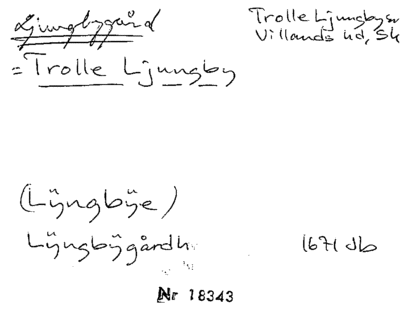 Ljungbygård
Trolle Ljungby sn
Villands hd, Sk
= Trolle Ljungby
(Lÿngbÿe)
Lÿngbÿgårdh
1671 db
Nr 18343